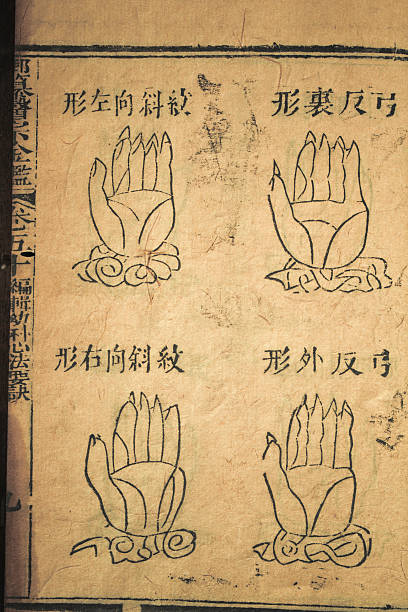 弓反裏形
紋斜向左形
弓反外形
紋斜向右形
御纂醫宗金鑑 卷五十 編輯幼科心法要訣
九